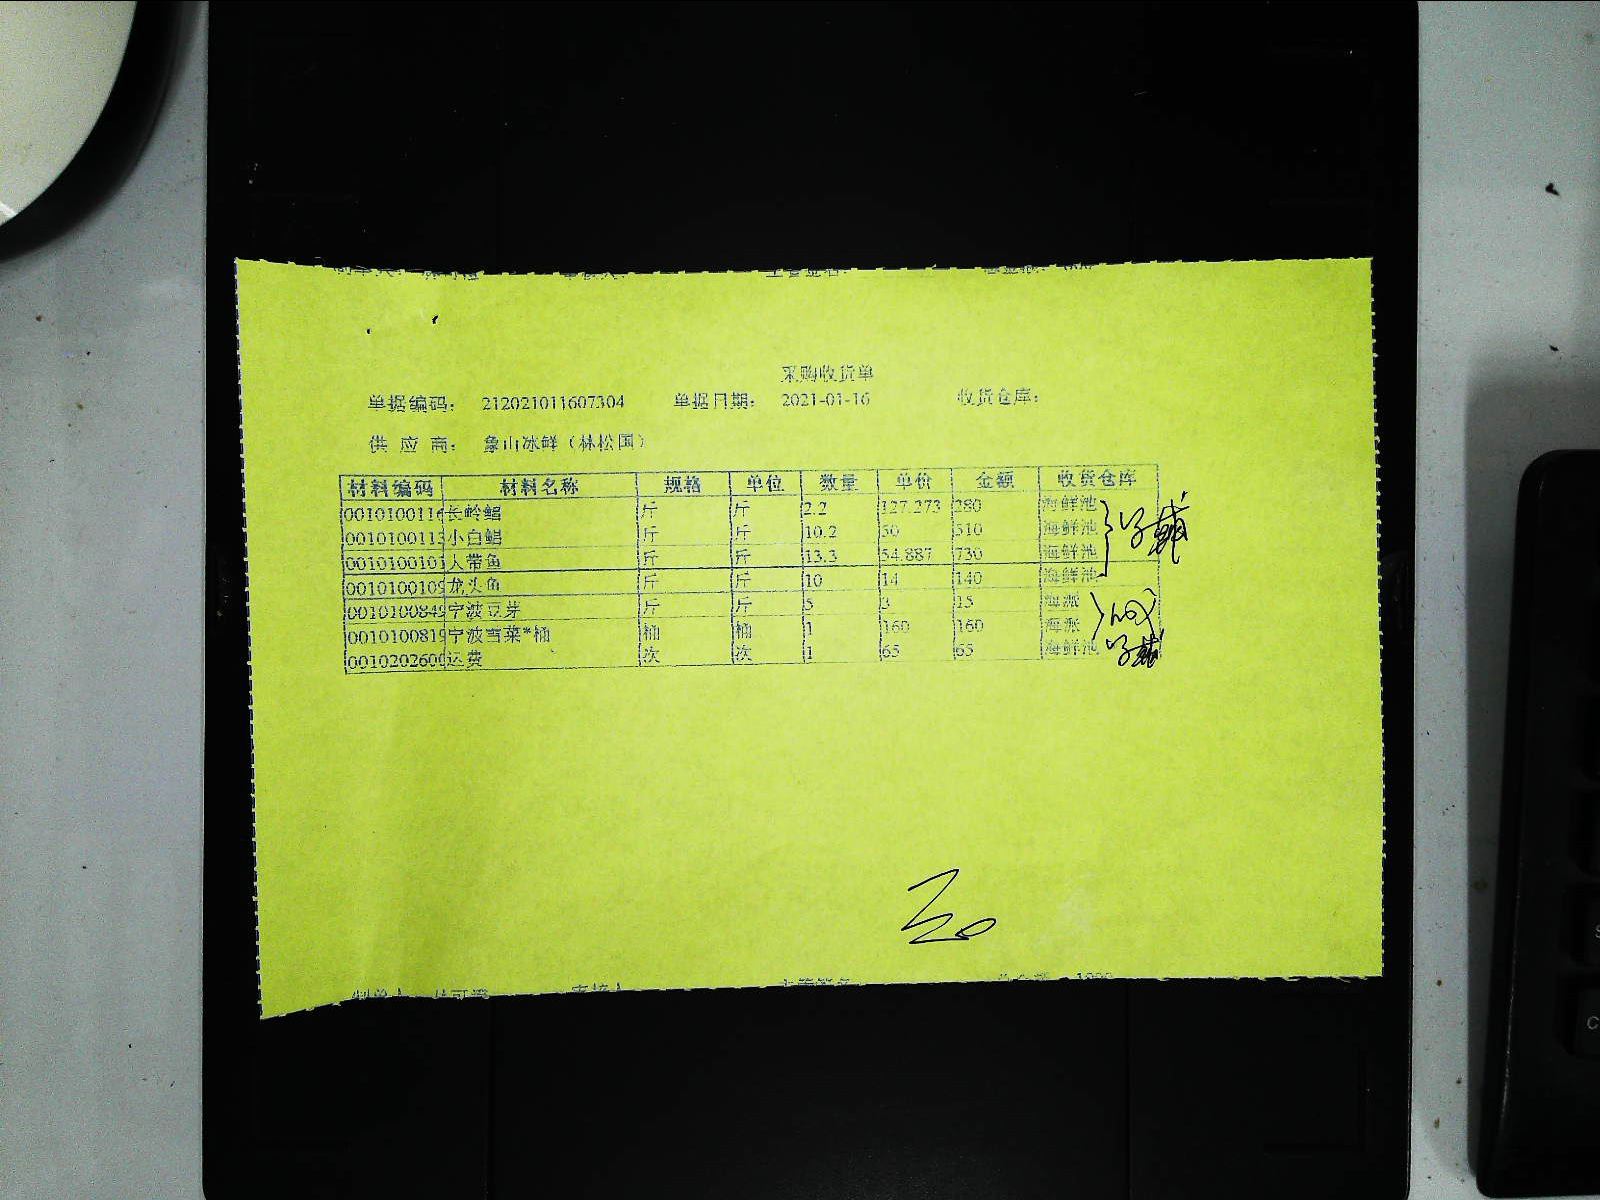 采购收货单
单据编码： 212021011607304 单据日期： 2021-01-16 收货仓库：
供 应 商： 象山冰鲜（林松国）
材料编码 材料名称 规格 单位 数量 单价 金额 收货仓库
001010011 长岭鲳 斤 斤 2.2 127.273 280 海鲜池
001010011 小白鲳 斤 斤 10.2 50 510 海鲜池
001010010 大带鱼 斤 斤 13.3 54.887 730 海鲜池
001010010 龙头鱼 斤 斤 10 14 140 海鲜池
001010084 宁波豆芽 斤 斤 5 3 15 海派
001010081 宁波雪菜*桶 桶 桶 1 160 160 海派
001020260 运费 次 次 1 65 65 海鲜池